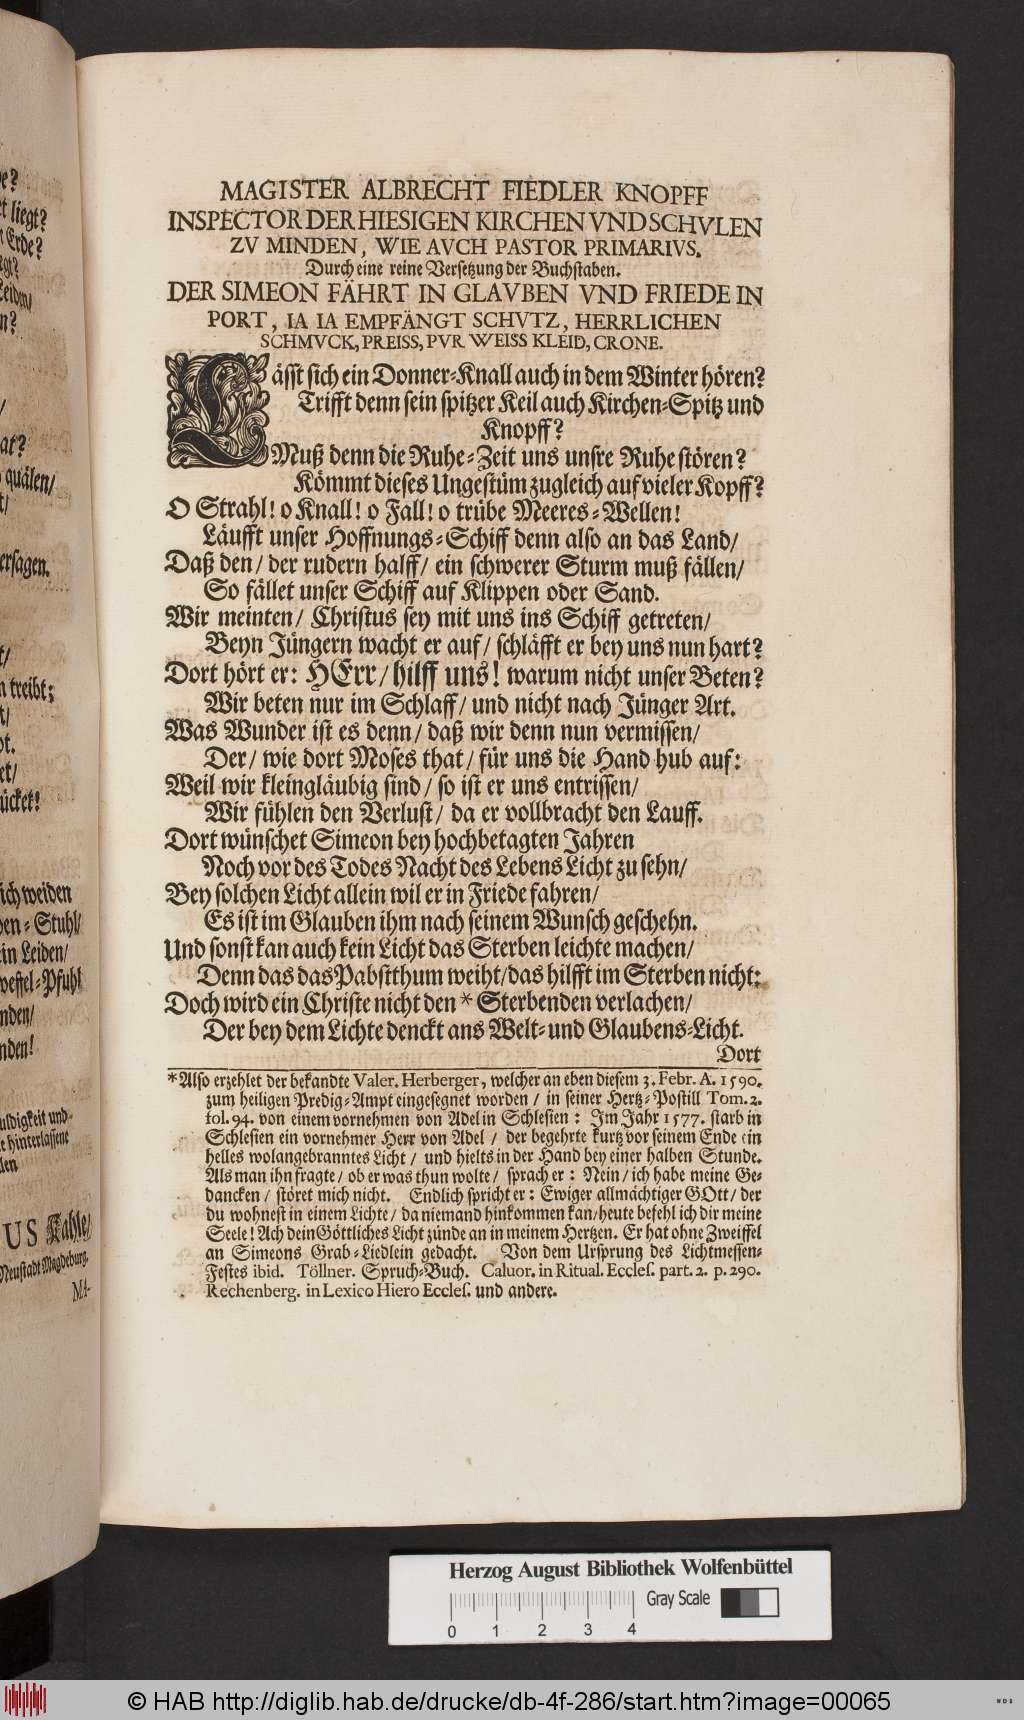 be?
et liegt?
r Erde?
Leiden/
n?
/
at?
quälen/
t/
ersagen.
t/
n treibt;
t/
bt.
et/
ücket!
sich weiden
ben-Stuhl/
in Leiden/
wefel-Pfuhl
nden/
nden!
uldigkeit und
e hinterlassene
len
US Kahle/
Neustadt Magdeburg.
MA-
MAGISTER ALBRECHT FIEDLER KNOPFF
INSPECTOR DER HIESIGEN KIRCHEN VND SCHVLEN
ZV MINDEN, WIE AVCH PASTOR PRIMARIVS.
Durch eine reine Versetzung der Buchstaben.
DER SIMEON FÄHRT IN GLAVBEN VND FRIEDE IN
PORT, IA IA EMPFÄNGT SCHVTZ, HERRLICHEN
SCHMVCK, PREISS, PVR WEISS KLEID, CRONE.
Lässt sich ein Donner-Knall auch in dem Winter hören?
Trifft denn sein spitzer Keil auch Kirchen-Spitz und
Knopff?
Muß denn die Ruhe-Zeit uns unsre Ruhe stören?
Kömmt dieses Ungestüm zugleich auf vieler Kopff?
O Strahl! o Knall! o Fall! o trübe Meeres-Wellen!
Läufft unser Hoffnungs-Schiff denn also an das Land/
Daß den/ der rudern halff/ ein schwerer Sturm muß fällen/
So fället unser Schiff auf Klippen oder Sand.
Wir meinten/ Christus sey mit uns ins Schiff getreten/
Beyn Jüngern wacht er auf/ schläfft er bey uns nun hart?
Dort hört er: HErr/ hilff uns! warum nicht unser Beten?
Wir beten nur im Schlaff/ und nicht nach Jünger Art.
Was Wunder ist es denn/ daß wir denn nun vermissen/
Der/ wie dort Moses that/ für uns die Hand hub auf:
Weil wir kleingläubig sind/ so ist er uns entrissen/
Wir fühlen den Verlust/ da er vollbracht den Lauff.
Dort wünschet Simeon bey hochbetagten Jahren
Noch vor des Todes Nacht des Lebens Licht zu sehn/
Bey solchen Licht allein wil er in Friede fahren/
Es ist im Glauben ihm nach seinem Wunsch geschehn.
Und sonst kan auch kein Licht das Sterben leichte machen/
Denn das das Pabstthum weiht/ das hilfft im Sterben nicht:
Doch wird ein Christe nicht den * Sterbenden verlachen/
Der bey dem Lichte denckt ans Welt- und Glaubens-Licht.
Dort
* Also erzehlet der bekandte Valer. Herberger, welcher an eben diesem 3. Febr. A. 1590.
zum heiligen Predig-Ampt eingesegnet worden/ in seiner Hertz-Postill Tom. 2.
fol. 94. von einem vornehmen von Adel in Schlesien: Im Jahr 1577. starb in
Schlesien ein vornehmer Herr von Adel/ der begehrte kurtz vor seinem Ende ein
helles wolangebranntes Licht/ und hielts in der Hand bey einer halben Stunde.
Als man ihn fragte/ ob er was thun wolte/ sprach er: Nein/ ich habe meine Ge-
dancken/ störet mich nicht. Endlich spricht er: Ewiger allmächtiger GOtt/ der
du wohnest in einem Lichte/ da niemand hinkommen kan/ heute befehl ich dir meine
Seele! Ach dein Göttliches Licht zünde an in meinem Hertzen. Er hat ohne Zweiffel
an Simeons Grab-Liedlein gedacht. Von dem Ursprung des Lichtmessen-
Festes ibid. Töllner. Spruch-Buch. Caluor. in Ritual. Eccles. part. 2. p. 290.
Rechenberg. in Lexico Hiero Eccles. und andere.
Herzog August Bibliothek Wolfenbüttel
Gray Scale
0 1 2 3 4
© HAB http://diglib.hab.de/drucke/db-4f-286/start.htm?image=00065